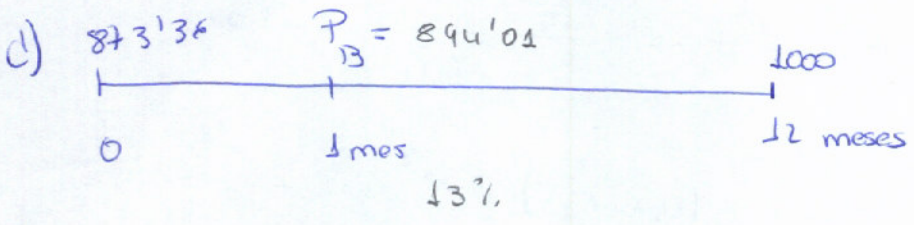 d) 873'36 P₁₃ = 894'01 1000
0 1 mes 12 meses
13%